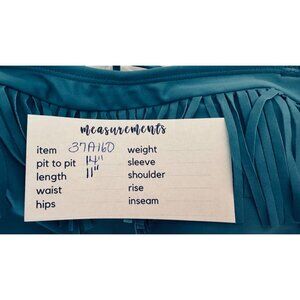 measurements
item 37A160 weight
pit to pit 14" sleeve
length 11" shoulder
waist rise
hips inseam